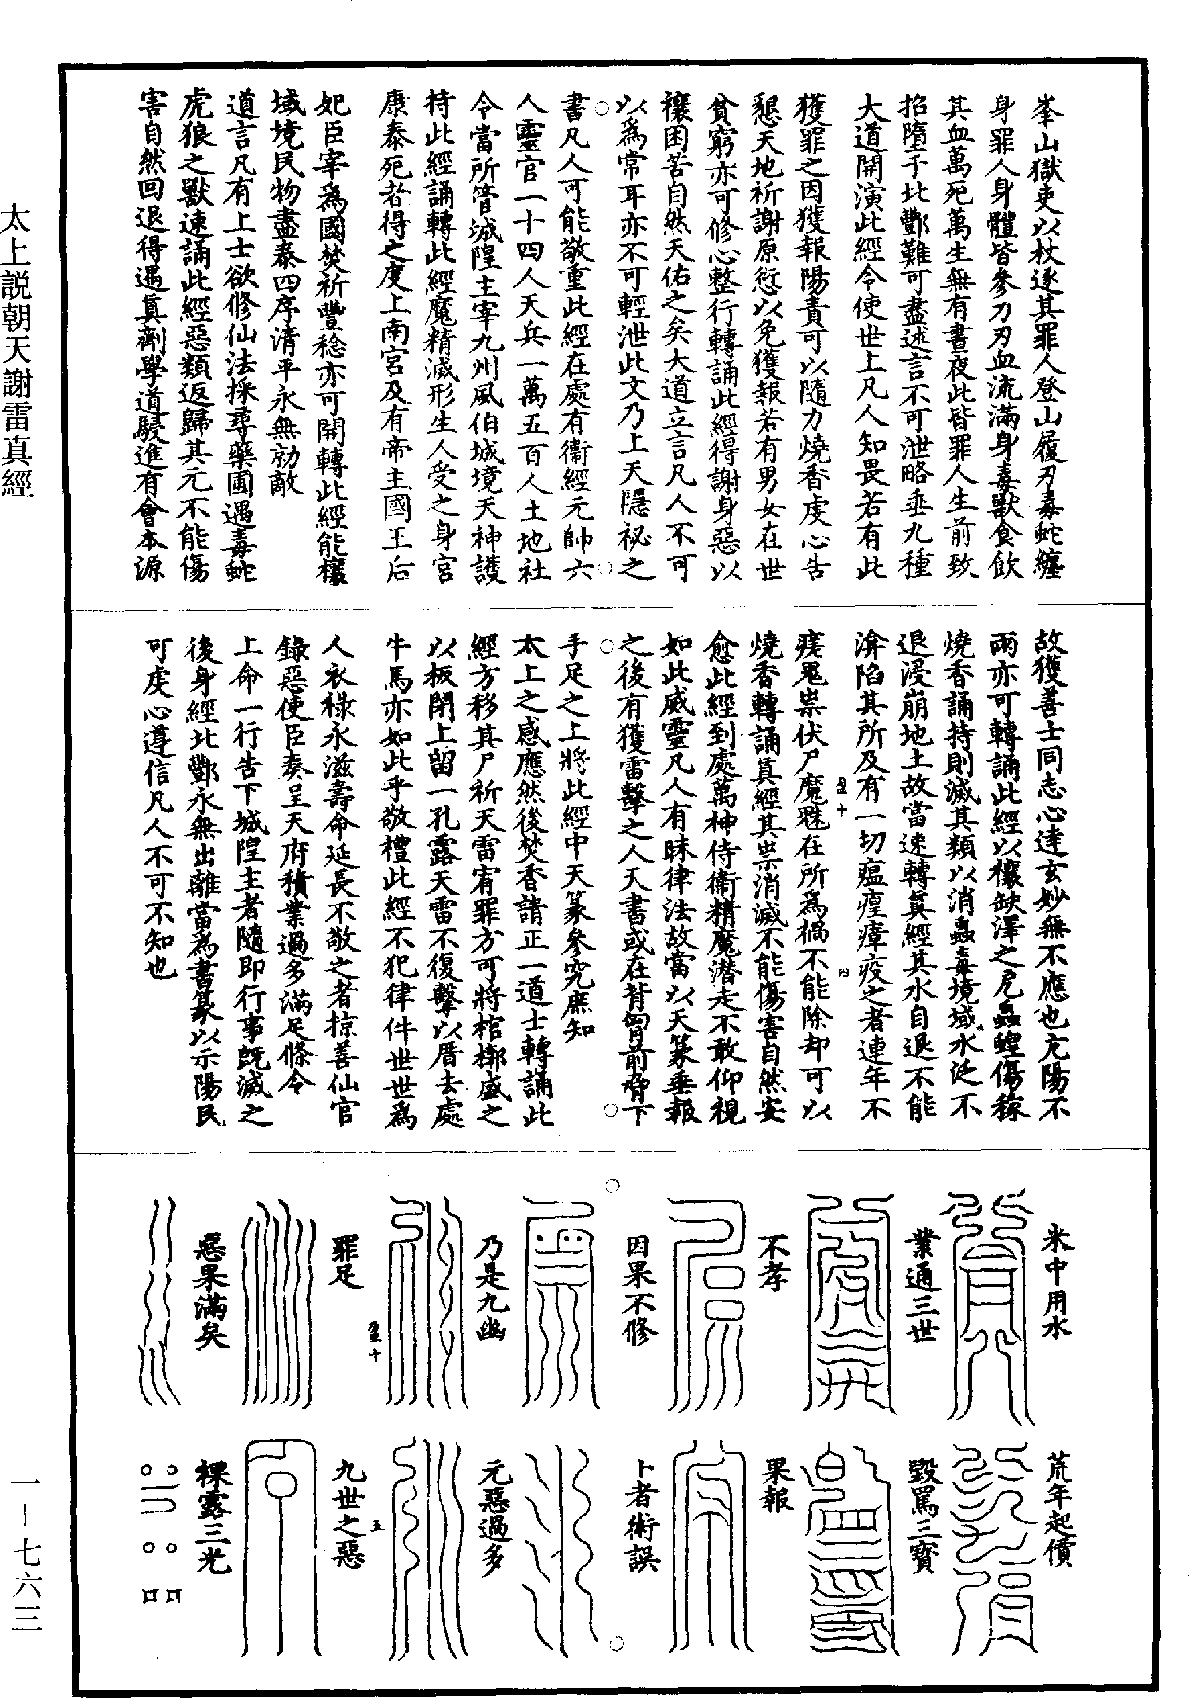 峯山獄吏以杖逐其罪人登山履刃毒蛇纏
身罪人身體皆參刀刃血流滿身毒獸食飲
其血萬死萬生無有晝夜此皆罪人生前致
招墮于此酆難可盡述言不可泄略垂九種
大道開演此經令使世上凡人知畏若有此
獲罪之因獲報陽責可以隨力燒香虔心告
懇天地祈謝原愆以免獲報若有男女在世
貧窮亦可修心整行轉誦此經得謝身惡以
禳困苦自然天佑之矣大道立言凡人不可
以爲常耳亦不可輕泄此文乃上天隱祕之
書凡人可能敬重此經在處有衛經元帥六
人靈官一十四人天兵一萬五百人土地社
令當所管城隍主宰九州風伯城境天神護
持此經誦轉此經魔精滅形生人受之身宮
康泰死者得之度上南宮及有帝主國王后
妃臣宰爲國焚祈豐稔亦可開轉此經能禳
域境民物盡泰四序清平永無勍敵
道言凡有上士欲修仙法採尋藥圃遇毒蛇
虎狼之獸速誦此經惡類返歸其元不能傷
害自然回退得遇真劑學道駿進有會本源
故獲善士同志心達玄妙無不應也亢陽不
雨亦可轉誦此經以禳缺澤之危蟲蝗傷稼
燒香誦持則滅其類以消蟲毒境域水泛不
退浸崩地土故當速轉真經其水自退不能
渰陷其所及有一切瘟㾮瘴疫之者連年不
瘥鬼祟伏尸魔魅在所爲禍不能除却可以
燒香轉誦真經其祟消滅不能傷害自然安
愈此經到處萬神侍衛精魔潛走不敢仰視
如此威靈凡人有昧律法故當以天篆垂報
之後有獲雷擊之人天書或在背胷前脅下
手足之上將此經中天篆參究庶知
太上之感應然後焚香請正一道士轉誦此
經方移其尸祈天雷宥罪方可將棺槨盛之
以板閉上留一孔露天雷不復擊以厝去處
牛馬亦如此乎敬禮此經不犯律件世世爲
人衣祿永滋壽命延長不敬之者掠善仙官
錄惡使臣奏呈天府積業過多滿足條令
上命一行告下城隍主者隨即行事既滅之
後身經北酆永無出離當為書篆以示陽民
可虔心遵信凡人不可不知也
米中用水
荒年起債
業通三世
毀罵三寶
不孝
果報
因果不修
卜者術誤
乃是九幽
元惡過多
罪足
九世之惡
惡果滿矣
裸露三光
太上説朝天謝雷真經
一—七六三